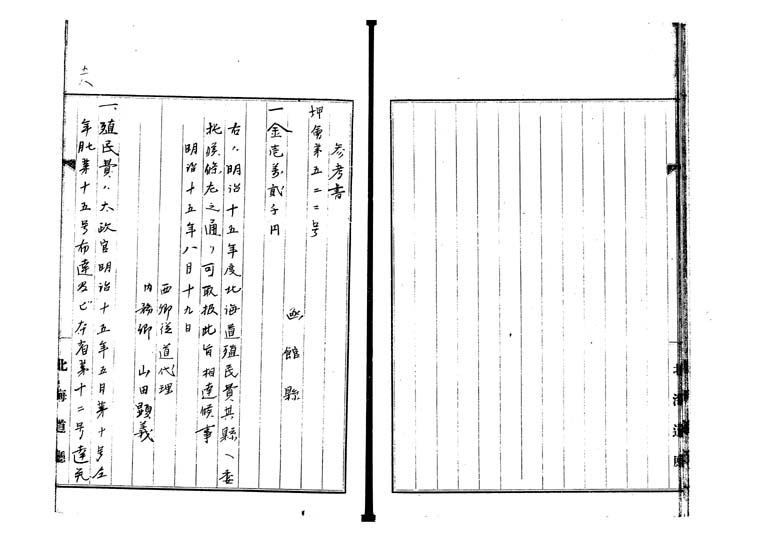 参考書
坤会第五二二号
函館縣
一金壱万貳千円
右ハ明治十五年度北海道殖民費其縣ヘ委
托候條左之通リ可取扱此旨相達候事
明治十五年八月十九日
西郷従道代理
内務卿 山田顕義
一、殖民費ハ太政官明治十五年五月第十号仝
年七月第十五号布達及ビ本省第十二号達先
北海道廳
北海道廳